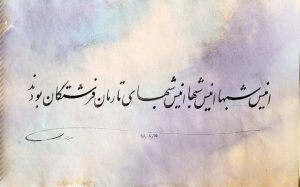 انیس شبها انیس شبها انیس شبهای تارمان فرشتگان بودند